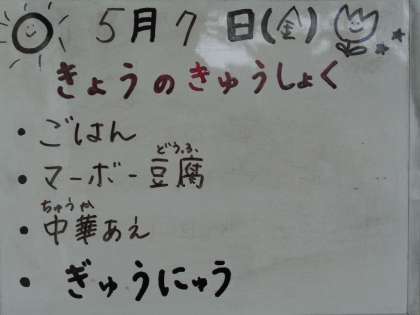 5月7日(金)
きょうのきゅうしょく
・ごはん
どうふ
・マーボー豆腐
ちゅうか
・中華あえ
・ぎゅうにゅう